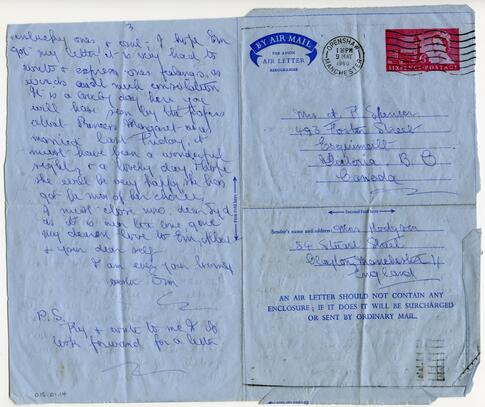 3
unlucky ones & cruel, I hope Em
got my letter it is very hard to
write & express ones feelings, as
words arnt much consolation
It is a lovely day here you
will have seen by the papers
about Princess Margaret was
married last Friday, it
must have been a wonderful
sight, & a lovely day I hope
she will be very happy she has
got the man of her choice,
I must close now dear Syd
as it is
my dearest love to Em, Allan
& your dear self
I am ever your loving
P.S.
Try & write to me I do
look forward for a letter
015.01.14
BY AIR MAIL
PAR AVION
AIR LETTER
AEROGRAMME
OPENSHAW
MANCHESTER
9 MAY
1960
SIXPENCE · POSTAGE
Mrs. A. P. Spencer
493 Foster Street
Esquimalt
Victoria B C
Canada
Second fold here
First fold here
Sender's name and address: Mrs Hodgson
84 Stuart Street
Clayton Manchester 11
England
AN AIR LETTER SHOULD NOT CONTAIN ANY
ENCLOSURE ; IF IT DOES IT WILL BE SURCHARGED
OR SENT BY ORDINARY MAIL.